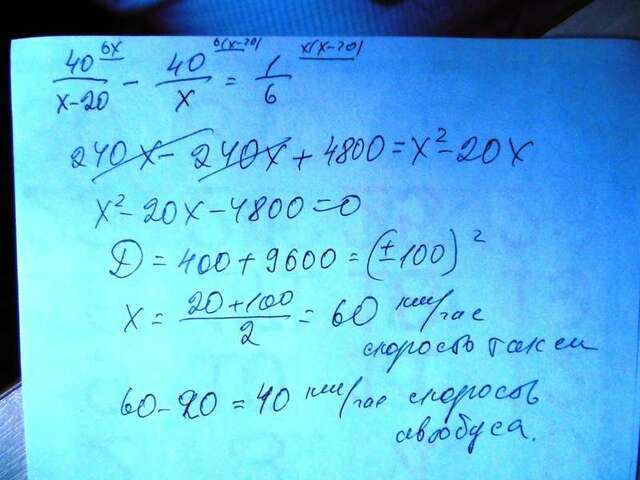 40^{6x}/(x-20) - 40^{6(x-20)}/x = 1^{x(x-20)}/6
240x - 240x + 4800 = x² - 20x
x² - 20x - 4800 = 0
D = 400 + 9600 = (±100)²
x = (20+100)/2 = 60 км/час
скорость такси
60 - 20 = 40 км/час скорость
автобуса.